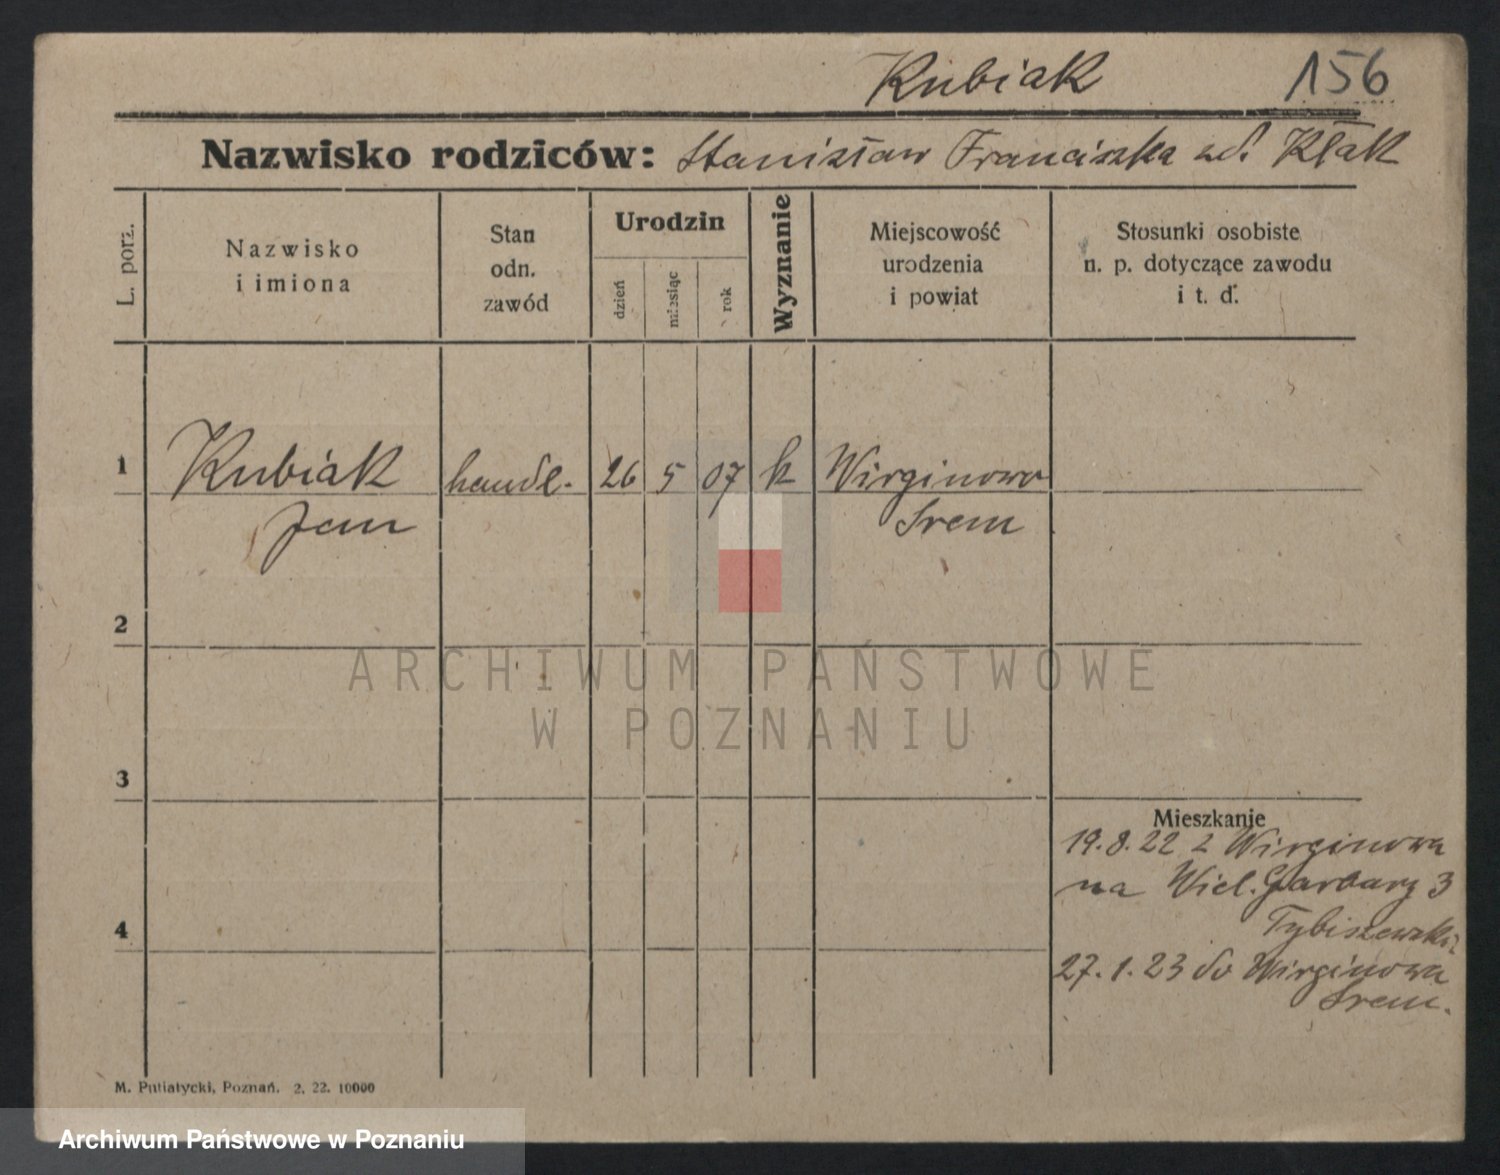 Kubiak 156
Nazwisko rodziców: Stanisław Franciszka zd. Kłak
L. porz.
Nazwisko
i imiona
Stan
odn.
zawód
Urodzin
dzień
miesiąc
rok
Wyznanie
Miejscowość
urodzenia
i powiat
Stosunki osobiste
n. p. dotyczące zawodu
i t. d.
1 Kubiak handl. 26 5 07 k Wirginowo
Jan Srem
2
3
Mieszkanie
19.8.22 z Wirginowa
na Wiel. Garbary 3
4
Tybiszewski
27.1.23 do Wirginowa
Srem.
M. Putiatycki, Poznań. 2. 22. 10000
ARCHIWUM PAŃSTWOWE
W POZNANIU
Archiwum Państwowe w Poznaniu